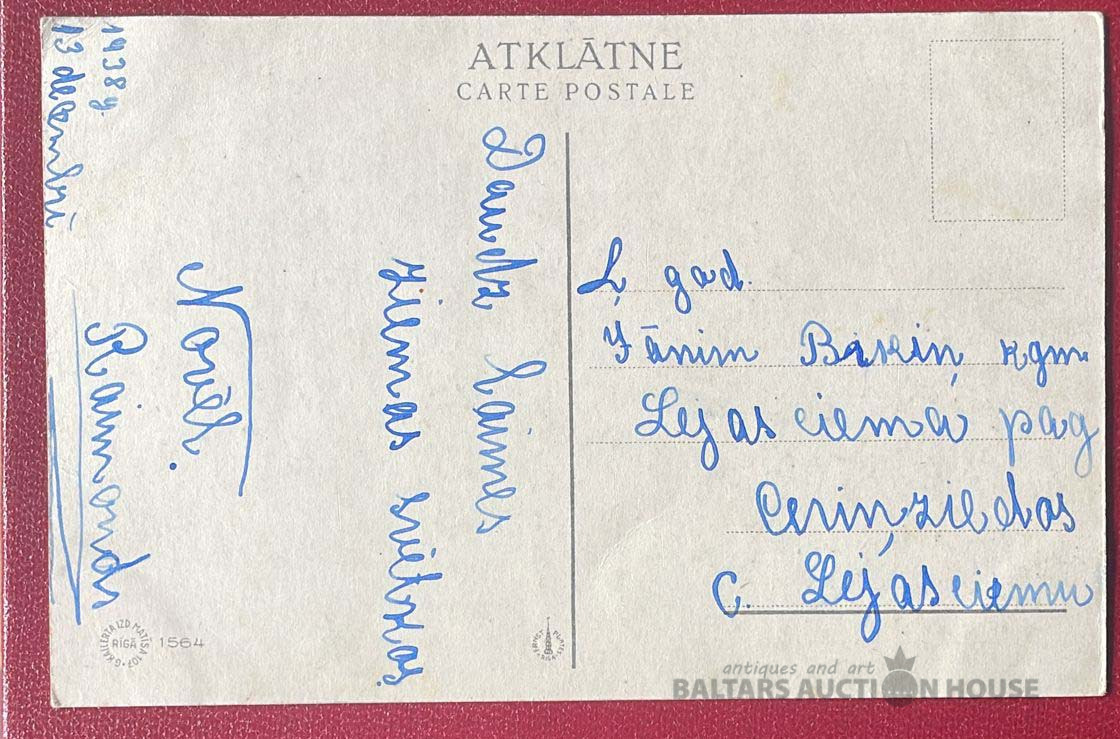 ATKLĀTNE
CARTE POSTALE
1938g.
13 decembrī
Daudz laimes
ziemas svētkos
Novēl.
Raimonds
Ļ gad.
Jānim kgm
Lejasciema pag
Ceriņziedos
C. Lejasciemu
G. KAILERTA IZD. MATĪSA 107
RĪGĀ
1564
antiques and art
BALTARS AUCTION HOUSE